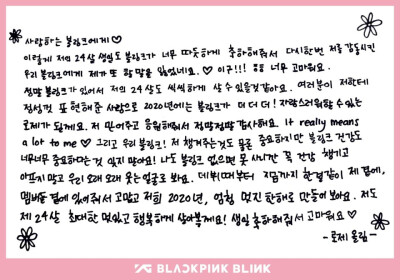 사랑하는 블링크에게♡
이렇게 저의 24살 생일도 블링크가 너무 따뜻하게 축하해줘서 다시한번 저를 감동시킨
우리 블링크에게 제가 또 할말을 잃었네요. ♡ 이구!!! 응응 너무 고마워요.
정말 블링크가 있어서 저의 24살도 씩씩하게 살 수 있을것같아요. 여러분이 저한테
정성껏 표현해준 사랑으로 2020년에는 블링크가 더 더 더! 자랑스러워할 수 있는
로제가 될게요. 저 믿어주고 응원해줘서 정말정말 감사해요. It really means
a lot to me ♡ 그리고 우리 블링크! 저 챙겨주는것도 물론 중요하지만 블링크 건강도
너무너무 중요하다는 것 잊지 말아요! 나도 블링크 없으면 못 사니깐 꼭 건강 챙기고
아프지말고 우리 오래오래 웃는얼굴로 봐요. 데뷔때부터 지금까지 한결같이 제 곁에,
멤버들 곁에 있어줘서 고맙고 저희 2020년, 엄청 멋진 한해로 만들어보아요. 저도
제 24살 최대한 멋있고 행복하게 살아볼게요! 생일 축하해줘서 고마워요♡
-로제 올림-
YG BLACKPINK BLINK